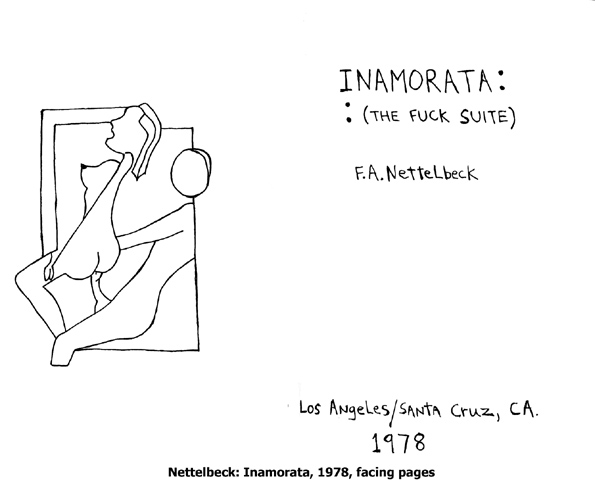 INAMORATA:
: (THE FUCK SUITE)
F.A. Nettelbeck
Los Angeles/Santa Cruz, CA.
1978
Nettelbeck: Inamorata, 1978, facing pages